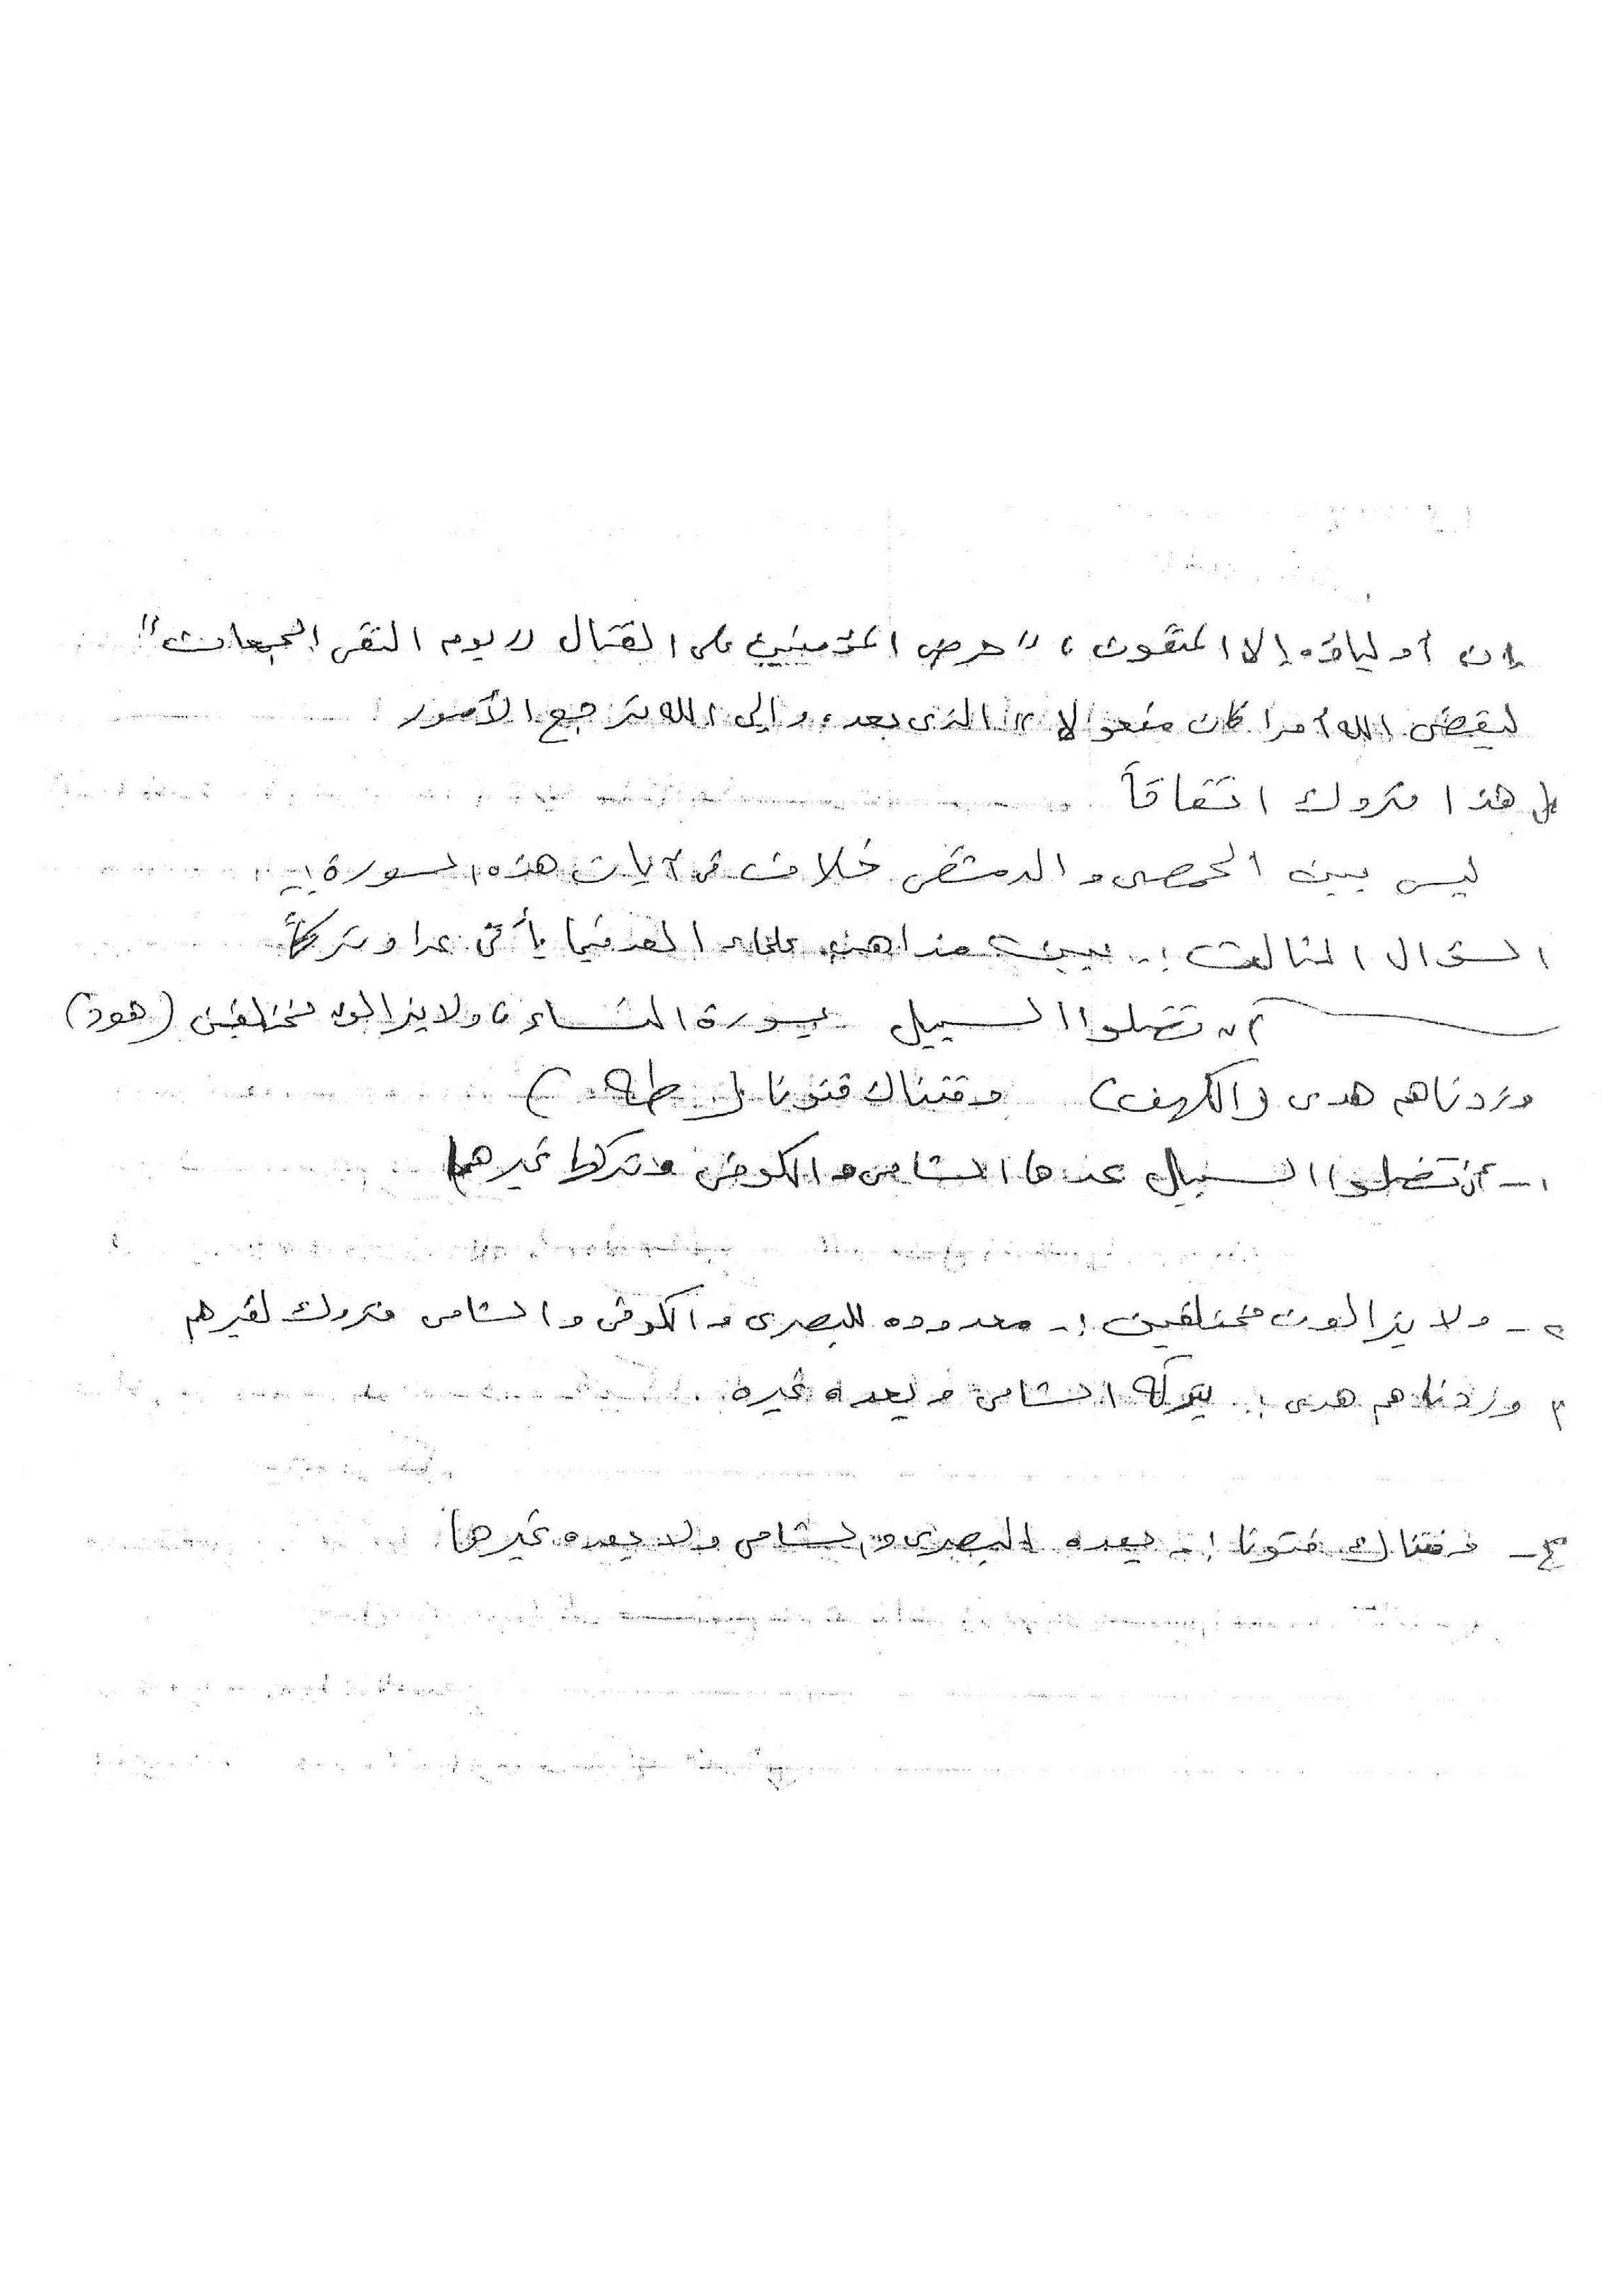 إن أولياؤه إلا المتقون، " حرض المؤمنين على القتال " يوم التقى الجمعان "
ليقضى الله أمرا كان مفعولا " الذى بعده وإلى الله ترجع الأمور
كل هذا متروك اتفاقاً
ليس بين الحمصى والدمشقى خلاف فى آيات هذه السورة
السؤال الثالث :- بين مذاهب علماء العد فيما يأتى عدا وتركاً
أن تضلوا السبيل بسورة النساء، ولا يزالون مختلفين (هود)
وزدناهم هدى (الكهف) وفتناك فتونا (طه)
١- أن تضلوا السبيل عدها الشامى والكوفى وتركها غيرهما
٢- ولا يزالون مختلفين :- معدوده للبصرى والكوفى والشامى متروك لغيرهم
٣ وزدناهم هدى :- يتركه الشامى ويعده غيره
٤- وفتناك فتونا :- يعده البصرى والشامى ولا يعده غيرهما